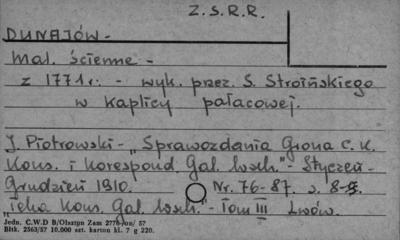 Z.S.R.R.
DUNAJÓW-
mal. ścienne -
z 1771 r. - wyk. przez. S. Stroińskiego
w kaplicy pałacowej.
J. Piotrowski - „Sprawozdania Grona C.K.
Kons. i Korespond Gal. Wsch." - Styczeń -
Grudzień 1910. Nr. 76-87. s. 8-
„Teka Kons. Gal. Wsch." - Tom III Lwów.
Jedn. C.W.D B/Olsztyn Zam 2778 57
Bltk. 2563/57 10.000 szt. karton kl. 7 g 220.